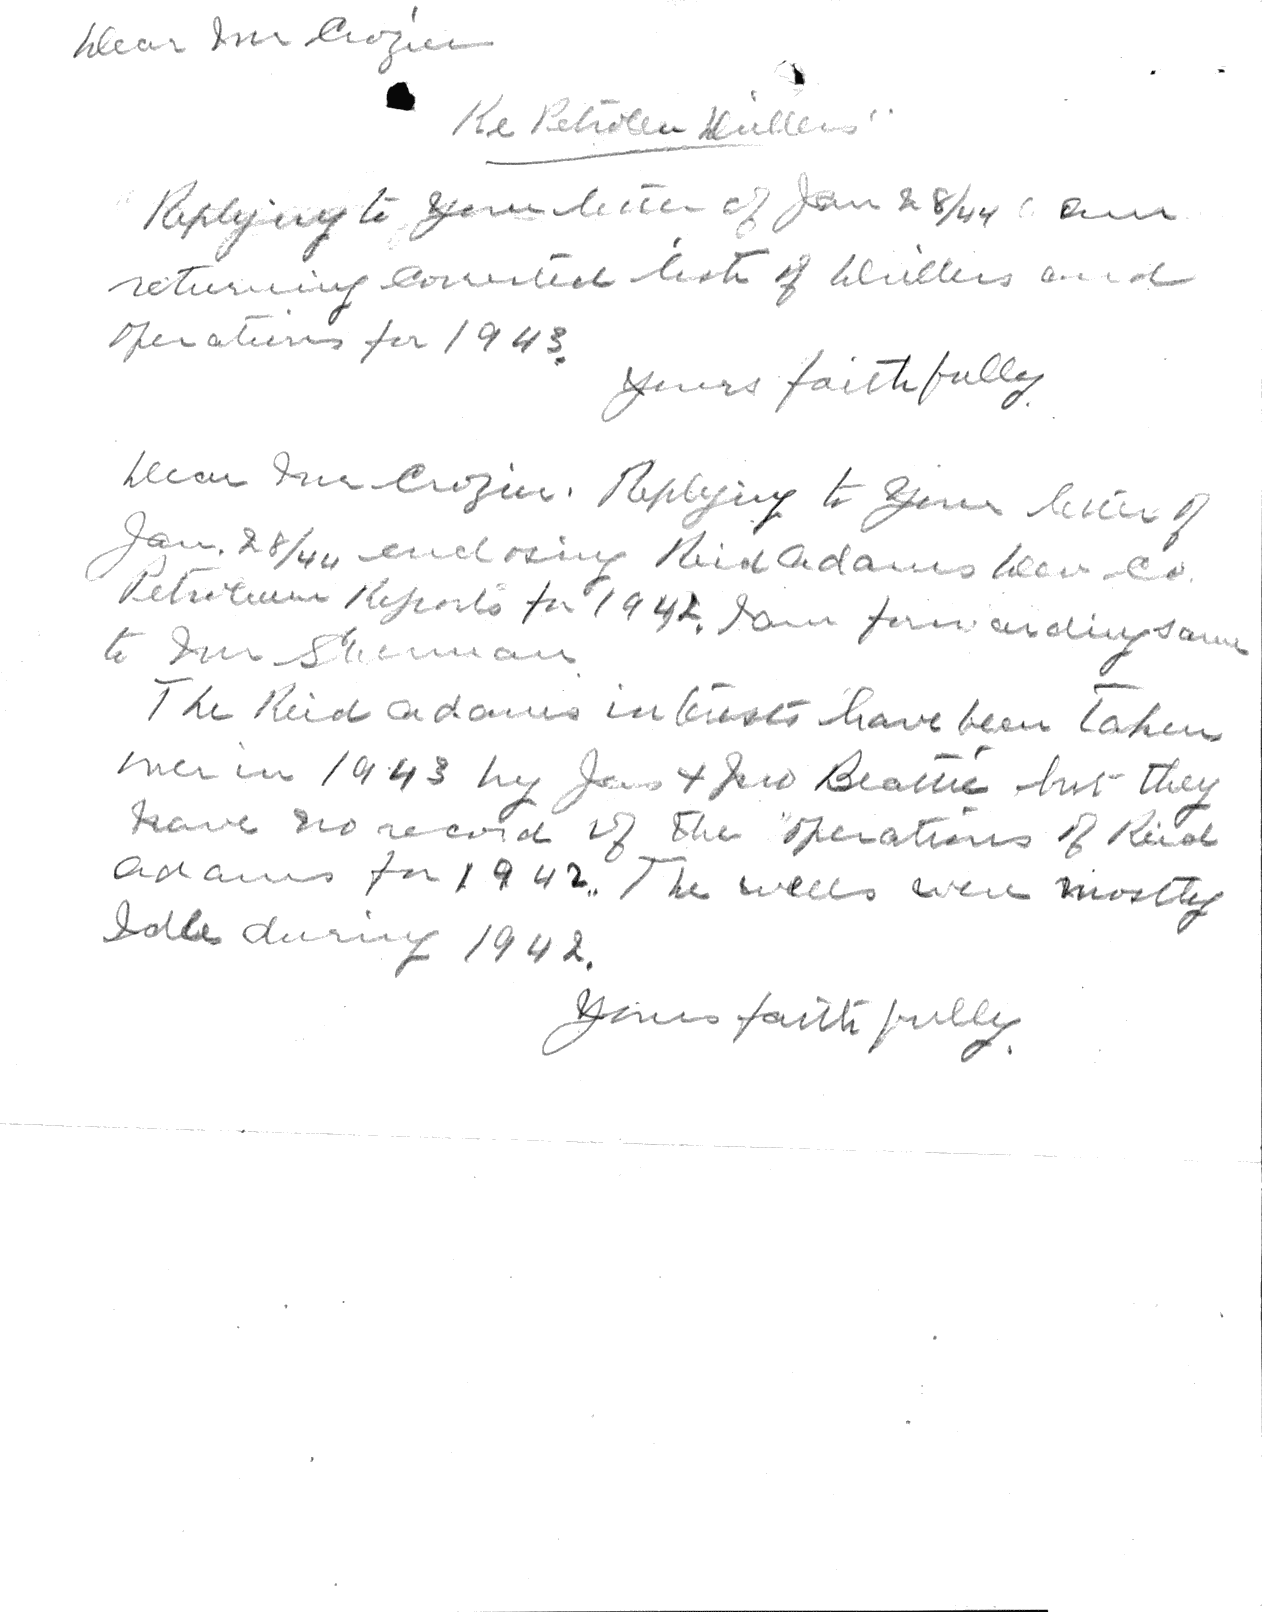 Dear Mr Crozier
Re Petrolea Drillers"
Replying to your letter of Jan 28/44 I am
returning corrected list of Drillers and
operations for 1943.
Yours faithfully.
Dear Mr Crozier. Replying to your letter of
Jan. 28/44 enclosing Reid Adams Dev Co.
Petroleum Reports for 1942, I am forwarding same
to Mr Sherman
The Reid Adams interests have been taken
over in 1943 by Jas + Jno Beattie but they
have no record of the operations of Reid
Adams for 1942.. The wells were mostly
Idle during 1942.
Yours faithfully.